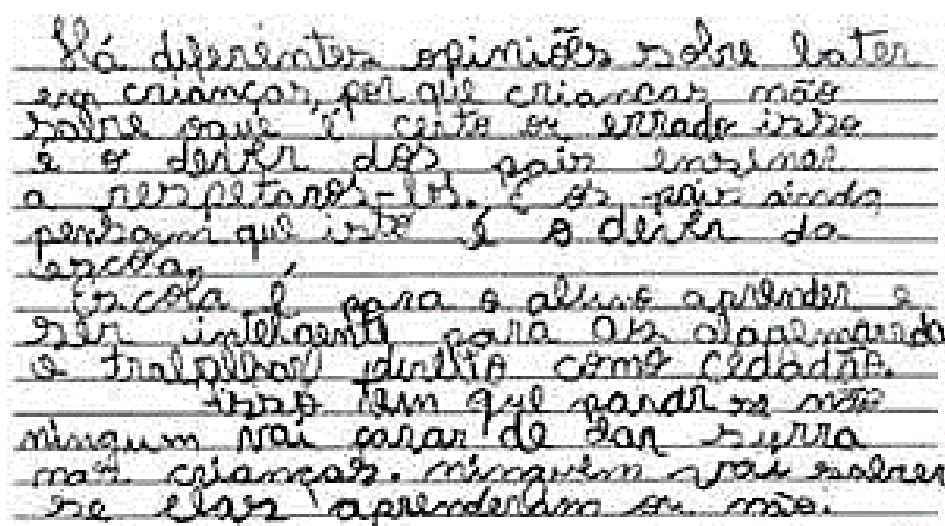 Há diferentes opiniões sobre bater
em crianças, por que crianças não
sabre oque é certo or errado isso
e o dever dos pais ensinar
a respetaros-los. E os pais ainda
pensam que isto é o dever da
escola.
Escola é para o aluno aprender e
ser inteligente para as
e trabalhar direito como cedadão.
isso tem que parar se não
ningum vai parar de dar surra
nas crianças. ninguém vai sabrer
se elas aprenderam ou não.